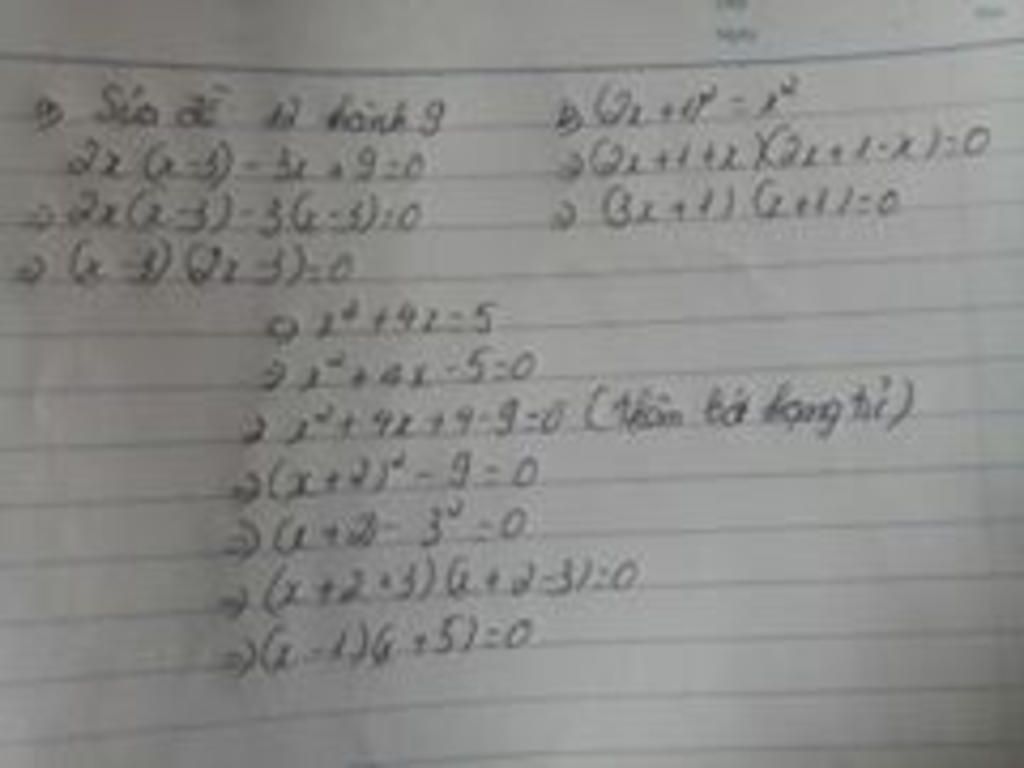 a) Sửa đề 12 thành 9
2x(x-3)-3x+9=0
=> 2x(x-3)-3(x-3)=0
=> (x-3)(2x-3)=0
b) (2x+1)² = x²
=> (2x+1+x)(2x+1-x)=0
=> (3x+1)(x+1)=0
c) x²+4x=5
=> x²+4x-5=0
=> x²+4x+4-9=0 (thêm bớt hạng tử)
=> (x+2)²-9=0
=> (x+2)-3²=0
=> (x+2+3)(x+2-3)=0
=> (x-1)(x+5)=0